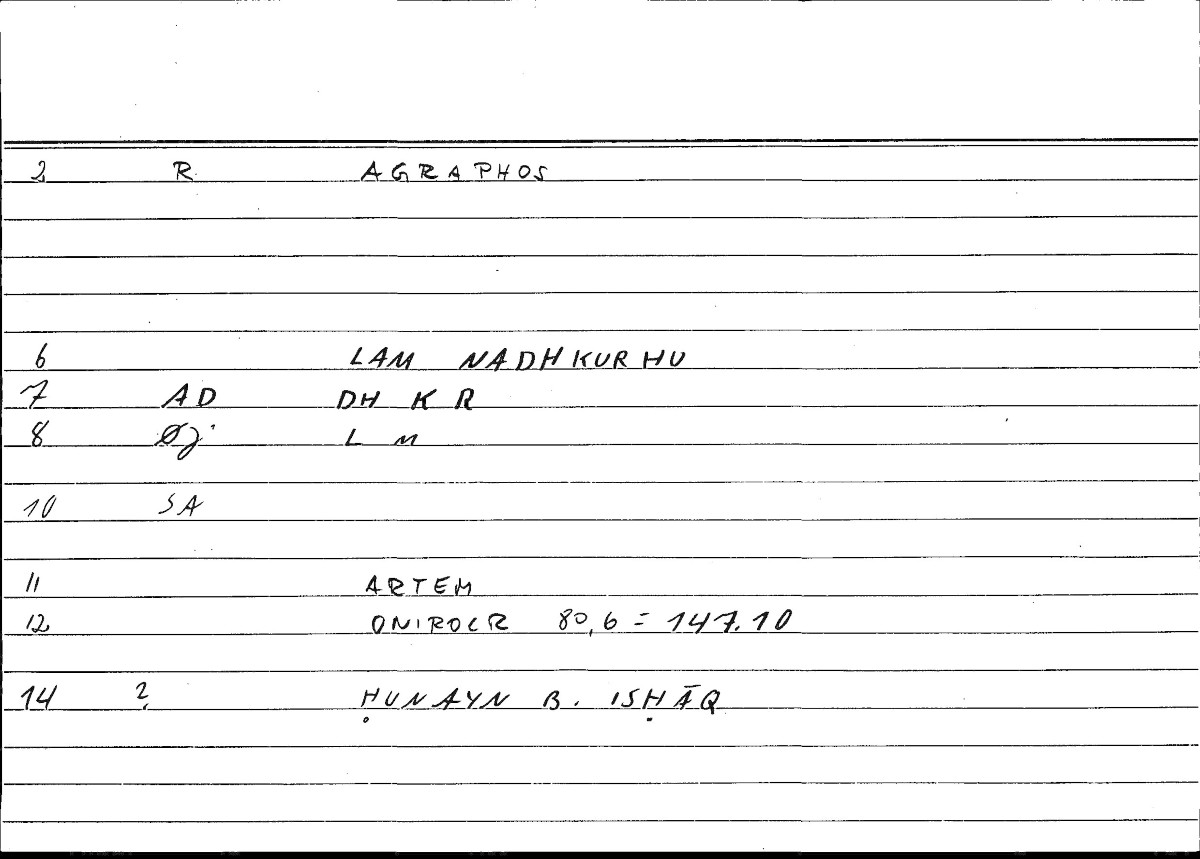 2 R AGRAPHOS
6 LAM NADHKURHU
7 AD DH K R
8 Øj L M
10 SA
11 ARTEM
12 ONIROCR 80,6 = 147.10
14 ? ḤUNAYN B. ISḤĀQ